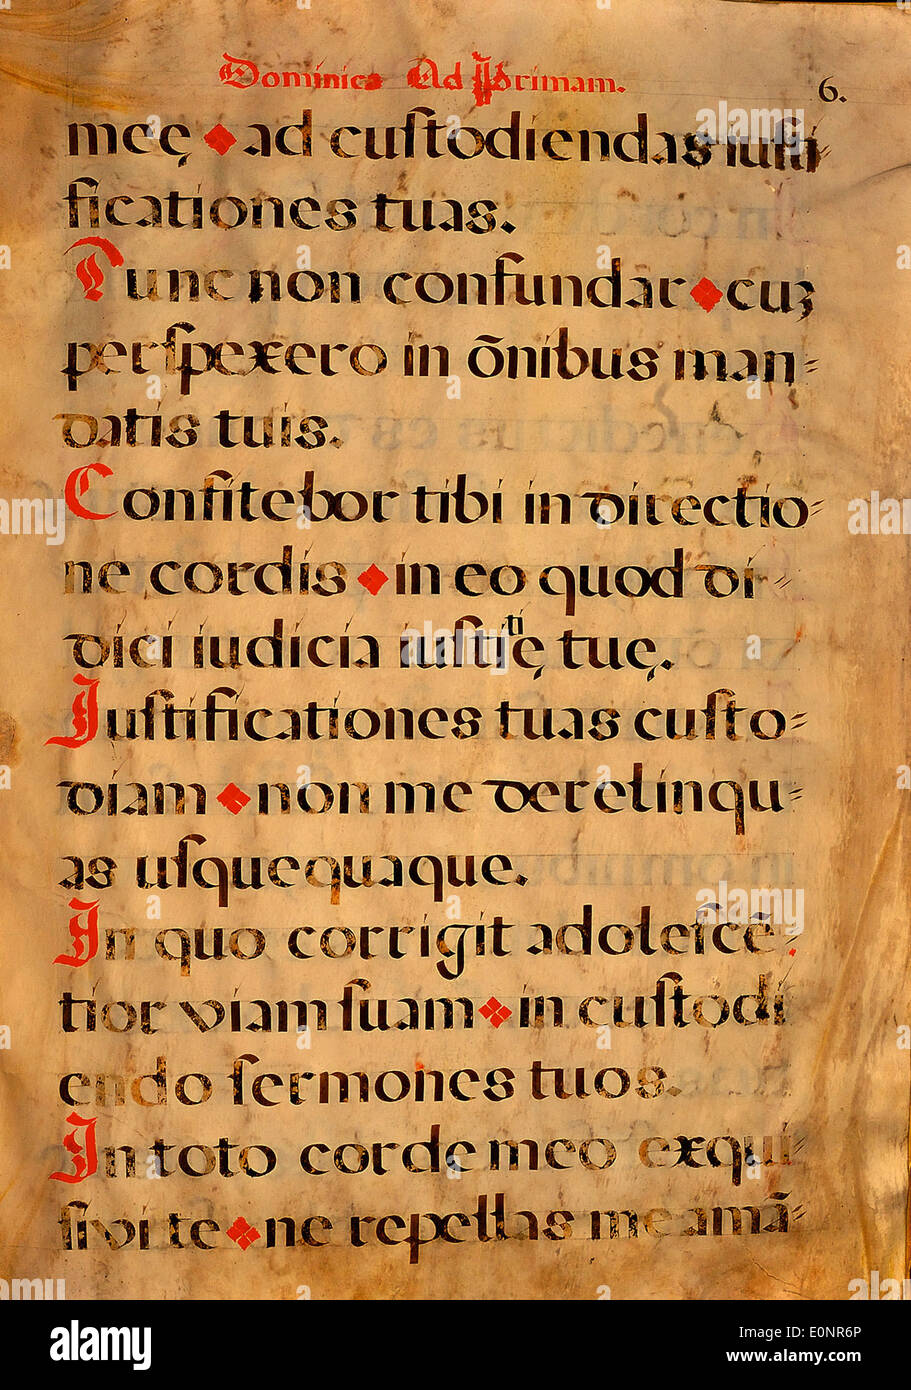 Dominica Ad Primam.
6.
meę ad cuſtodiendas iuſti
ficationes tuas.
Tunc non confundar cuꝫ
perſpexero in õnibus man=
datis tuis.
Confitebor tibi in directio=
ne cordis in eo quod di=
dici iudicia iuſtitię tuę.
Iuſtificationes tuas cuſto=
diam non me derelinqu=
as uſquequaque.
In quo corrigit adoleſcē=
tior viam ſuam in cuſtodi
endo ſermones tuos.
In toto corde meo exqui=
ſivi te ne repellas me amā=
alamy
Image ID: E0NR6P
www.alamy.com